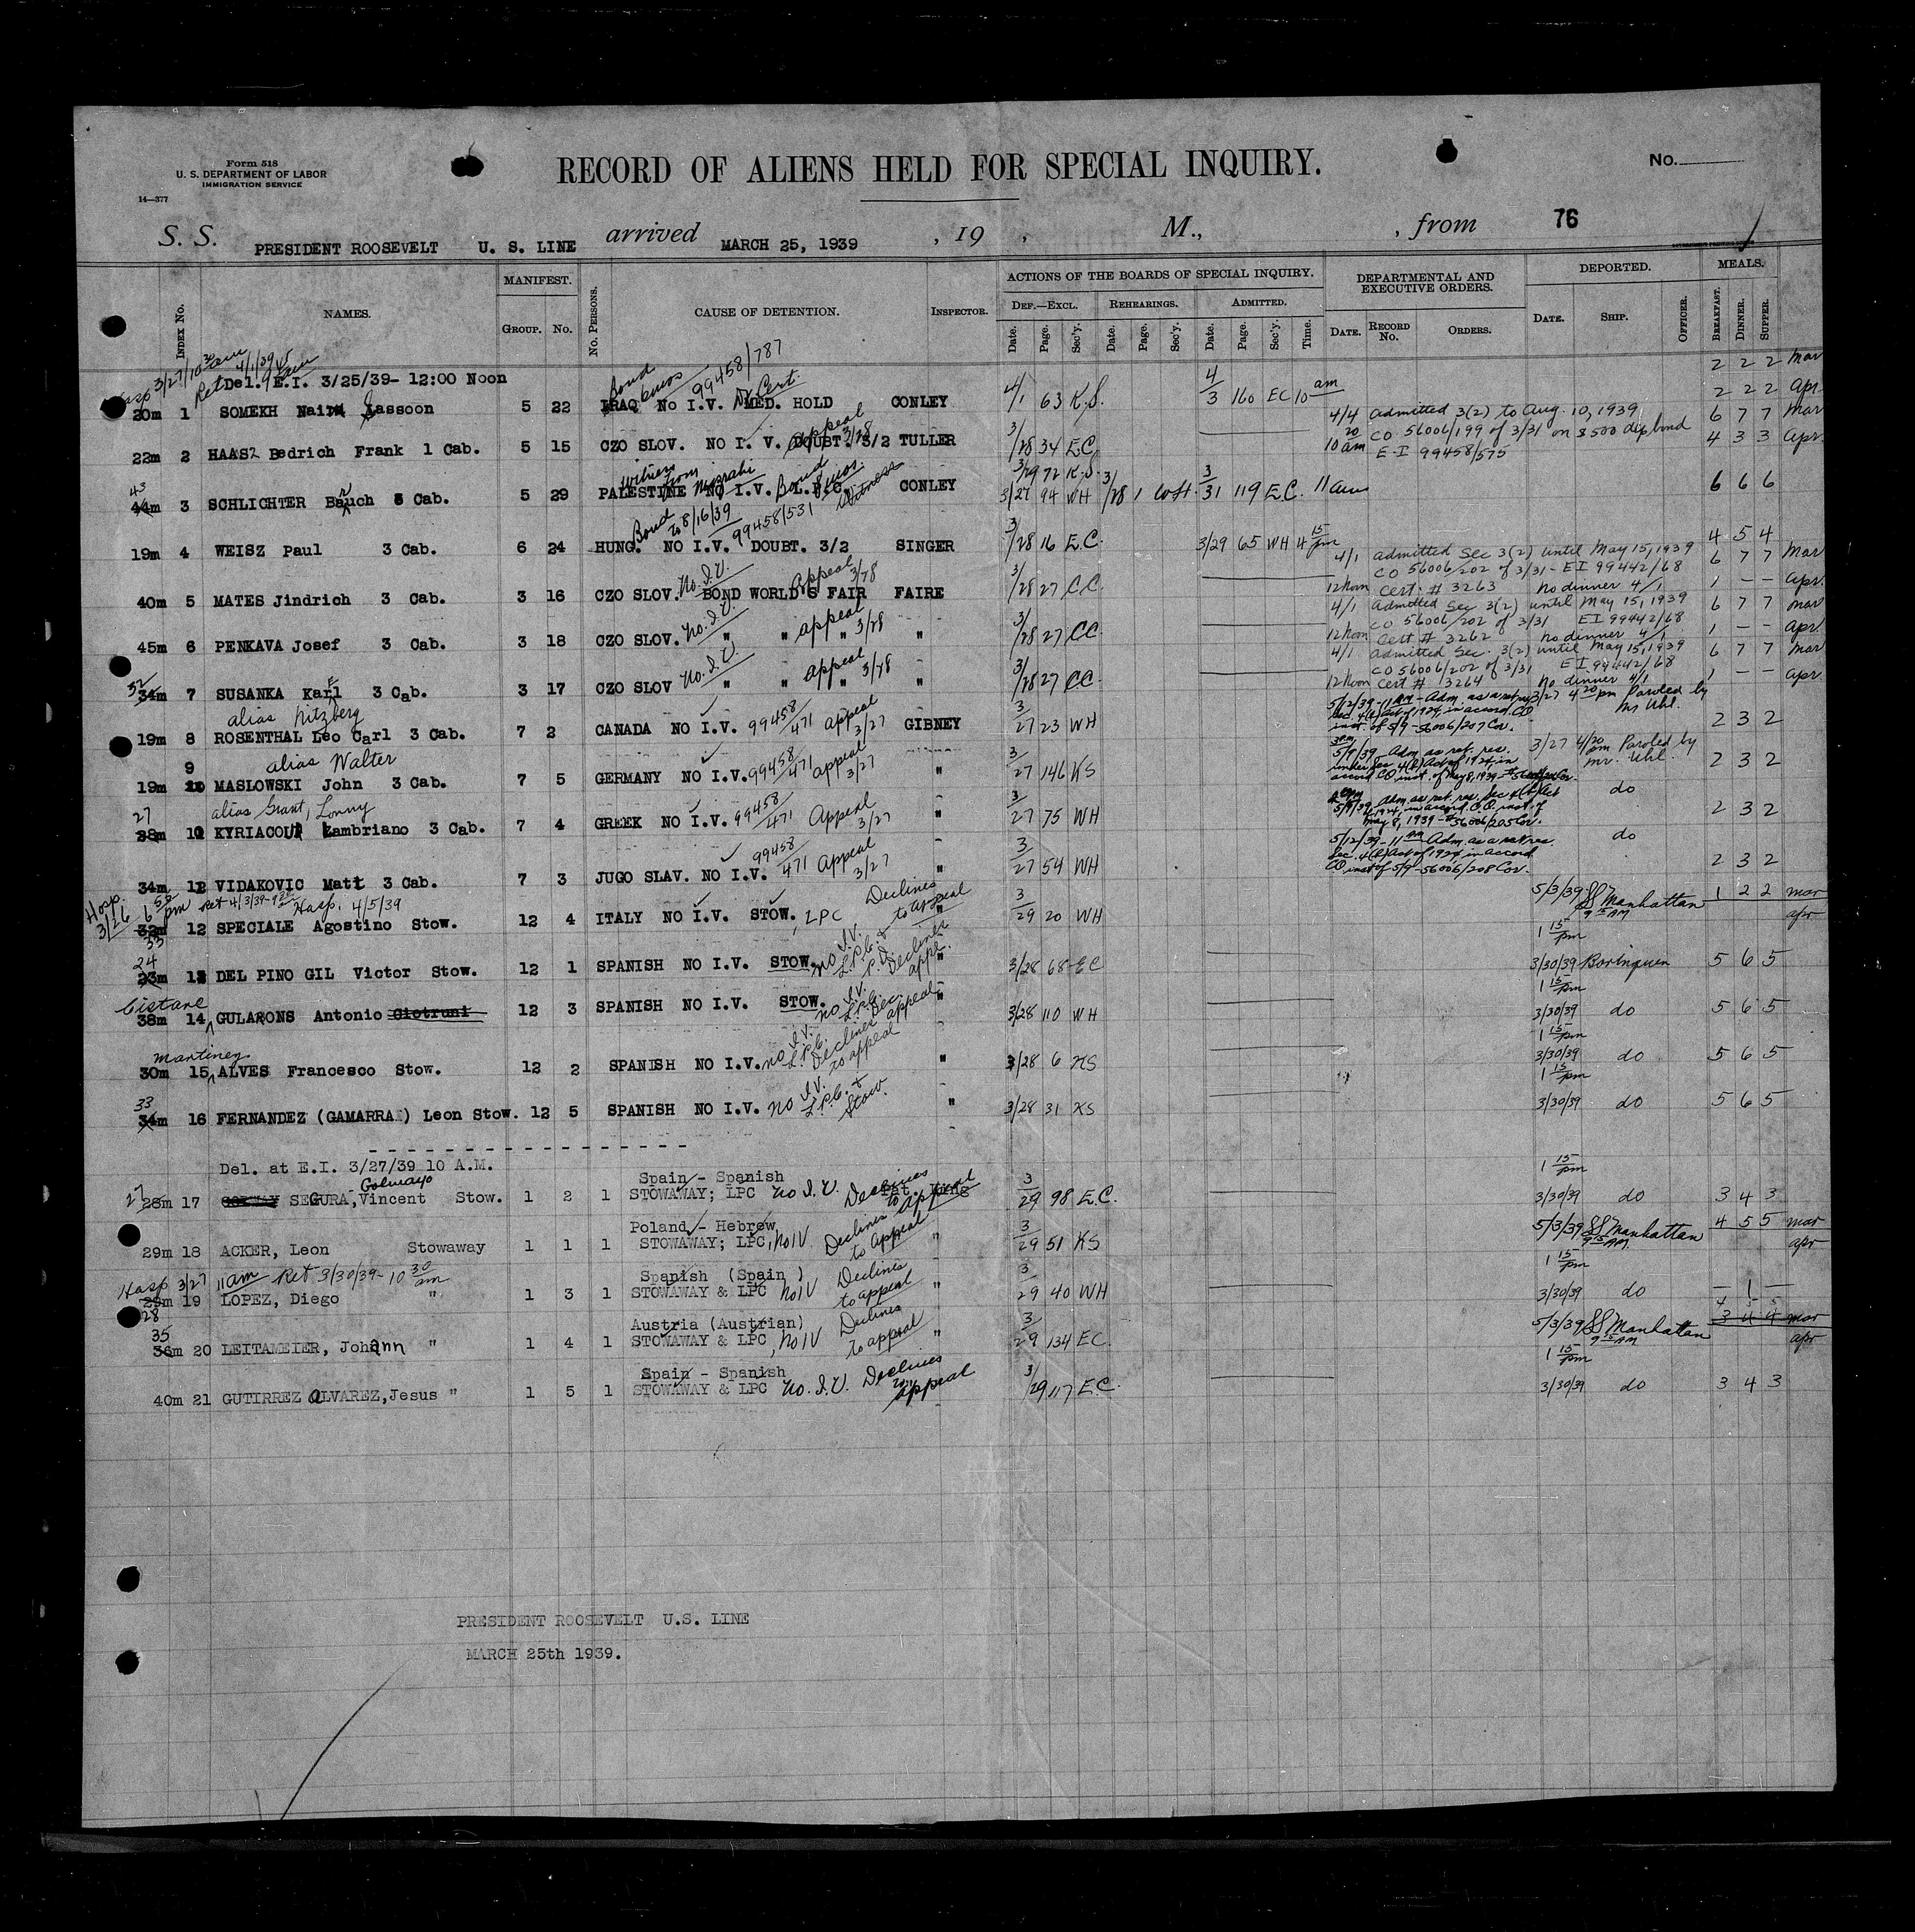 Form 518
U. S. DEPARTMENT OF LABOR
IMMIGRATION SERVICE
14—377
RECORD OF ALIENS HELD FOR SPECIAL INQUIRY.
No.
S. S. PRESIDENT ROOSEVELT U. S. LINE arrived MARCH 25, 1939 , 19 , M., , from 76
INDEX No. NAMES. MANIFEST. GROUP. No. No. PERSONS. CAUSE OF DETENTION. INSPECTOR. ACTIONS OF THE BOARDS OF SPECIAL INQUIRY. DEF.—EXCL. Date. Page. Sec'y. REHEARINGS. Date. Page. Sec'y. ADMITTED. Date. Page. Sec'y. Time. DEPARTMENTAL AND EXECUTIVE ORDERS. DATE. RECORD No. ORDERS. DEPORTED. DATE. SHIP. OFFICER. MEALS. BREAKFAST. DINNER. SUPPER.
Hosp 3/27/10 30 am
Ret 4/1/39 9 45 am
Bond 99458/787
Del. E.I. 3/25/39- 12:00 Noon 2 2 2 Mar
20m 1 SOMEKH Naim Sassoon 5 22 IRAQ NO I.V. MED. HOLD Dr Cert. CONLEY 4/1 63 K.S. 4/3 160 EC 10 am 2 2 2 Apr
22m 2 HAAS Bedrich Frank 1 Cab. 5 15 CZO SLOV. NO I. V. DOUBT. 3/2 Appeal 3/28 TULLER 3/28 34 E.C. 4/4 Admitted 3(2) to Aug. 10, 1939 6 7 7 Mar
CO 56006/199 of 3/31 on $500 dep bond 4 3 3 Apr.
10 20 am E-I 99458/575
43
44m 3 SCHLICHTER Baruch 3 Cab. 5 29 PALESTINE NO I.V. L.P.C. Witness from Mizrahi Bond 8 mos. Witness CONLEY 3/29 72 K.S. 3/27 94 WH 3/28 1 3/31 119 E.C. 11 am 6 6 6
Bond to 8/16/39 99458/531
19m 4 WEISZ Paul 3 Cab. 6 24 HUNG. NO I.V. DOUBT. 3/2 SINGER 3/28 16 E.C. 3/29 65 WH 4 15 pm 4 5 4
40m 5 MATES Jindrich 3 Cab. 3 16 CZO SLOV. No. I.V. BOND WORLD'S FAIR Appeal 3/28 FAIRE 3/28 27 CC. 4/1 Admitted Sec 3(2) until May 15, 1939 6 7 7 Mar
CO 56006/202 of 3/31 - EI 99442/68
12 Noon Cert. # 3263 No dinner 4/1 1 — — Apr.
45m 6 PENKAVA Josef 3 Cab. 3 18 CZO SLOV. No. I.V. " " " appeal 3/28 " 3/28 27 CC. 4/1 Admitted Sec 3(2) until May 15, 1939 6 7 7 Mar
CO 56006/202 of 3/31 EI 99442/68
12 Noon Cert # 3262 No dinner 4/1 1 — — Apr.
52
34m 7 SUSANKA Karel 3 Cab. 3 17 CZO SLOV No. I.V. " " " appeal 3/28 " 3/28 27 CC. 4/1 Admitted Sec. 3(2) until May 15, 1939 6 7 7 Mar
CO 56006/202 of 3/31 EI 99442/68
12 Noon Cert # 3264 No dinner 4/1 1 — — Apr
alias Ritzberg
19m 8 ROSENTHAL Leo Carl 3 Cab. 7 2 CANADA NO I.V. 99458/471 appeal 3/27 GIBNEY 3/27 23 WH 5/12/39-11 am - Adm. as a ret res Sec. 4(b) Act of 1924, in accord. CO inst. of 5/9-56006/207 Cov. 3/27 4 20 pm Paroled by Mr Uhl. 2 3 2
alias Walter
19m 9 MASLOWSKI John 3 Cab. 7 5 GERMANY NO I.V. 99458/471 appeal 3/27 " 3/27 146 KS 5/9/39 Adm as ret. res. under Sec 4(b) Act of 1924, in accord CO inst. of May 8, 1939 3/27 4/20 pm Paroled by Mr. Uhl. 2 3 2
27 alias Grant, Lonny
28m 10 KYRIACOU Lambriano 3 Cab. 7 4 GREEK NO I.V. 99458/471 Appeal 3/27 " 3/27 75 WH 5/9/39 Adm as ret. res. Sec 4(b) Act of 1924, in accord C.O. inst. of May 8, 1939-#56006/205 Cov. do 2 3 2
34m 11 VIDAKOVIC Matt 3 Cab. 7 3 JUGO SLAV. NO I.V. 99458/471 Appeal 3/27 " 3/27 54 WH 5/12/39-11 am Adm. as a ret res. Sec. 4(b) Act of 1924, in accord CO inst of 5/9-56006/208 Cov. do 2 3 2
Hosp. 3/26 6 55 pm Ret 4/3/39- Hosp. 4/5/39
32m 12 SPECIALE Agostino Stow. 12 4 ITALY NO I.V. STOW. , LPC Declines to appeal " 3/29 20 WH 5/3/39 SS Manhattan 9 15 AM 1 2 2 Mar
apr
33
24
23m 13 DEL PINO GIL Victor Stow. 12 1 SPANISH NO I.V. STOW. no I.V. L.P.C. & Declines appl. " 3/28 68 EC 1 15 pm 3/30/39 Borinquen 5 6 5
Cistare
38m 14 GULARONS Antonio Ciotruni 12 3 SPANISH NO I.V. STOW. no I.V. L.P.C. Dec. appeal " 3/28 110 WH 1 15 pm 3/30/39 do 5 6 5
Martinez
30m 15 ALVES Francesco Stow. 12 2 SPANISH NO I.V. no I.V. L.P.C. Declines to appeal " 3/28 6 KS 1 15 pm 3/30/39 do 5 6 5
33
34m 16 FERNANDEZ (GAMARRA) Leon Stow. 12 5 SPANISH NO I.V. no I.V. L.P.C. & Stow. " 3/28 31 KS 1 15 pm 3/30/39 do 5 6 5
Del. at E.I. 3/27/39 10 A.M.
Golmayo Spain - Spanish 1 15 pm
27 28m 17 SEGURA, Vincent Stow. 1 2 1 STOWAWAY; LPC No. I.V. Declines to appeal 3/29 98 E.C. 3/30/39 do 3 4 3
Poland - Hebrew
29m 18 ACKER, Leon Stowaway 1 1 1 STOWAWAY; LPC, No IV Declines to Appeal " 3/29 51 KS 5/3/39 SS Manhattan 9 15 AM 4 5 5 Mar
apr
Hosp 3/27 11am Ret 3/30/39- 10 30 am Spanish (Spain ) 1 15 pm
29m 19 LOPEZ, Diego " 1 3 1 STOWAWAY & LPC No IV Declines to appeal " 3/29 40 WH 3/30/39 do — 1 —
28
35 Austria (Austrian) 4 5 5
36m 20 LEITAMEIER, Johann " 1 4 1 STOWAWAY & LPC, No IV Declines to appeal " 3/29 134 EC. 5/3/39 SS Manhattan 9 15 AM 3 4 4 Mar
apr
Spain - Spanish 1 15 pm
40m 21 GUTIRREZ ALVAREZ, Jesus " 1 5 1 STOWAWAY & LPC No. I.V. Declines to appeal 3/29 117 E.C. 3/30/39 do 3 4 3
PRESIDENT ROOSEVELT U.S. LINE
MARCH 25th 1939.